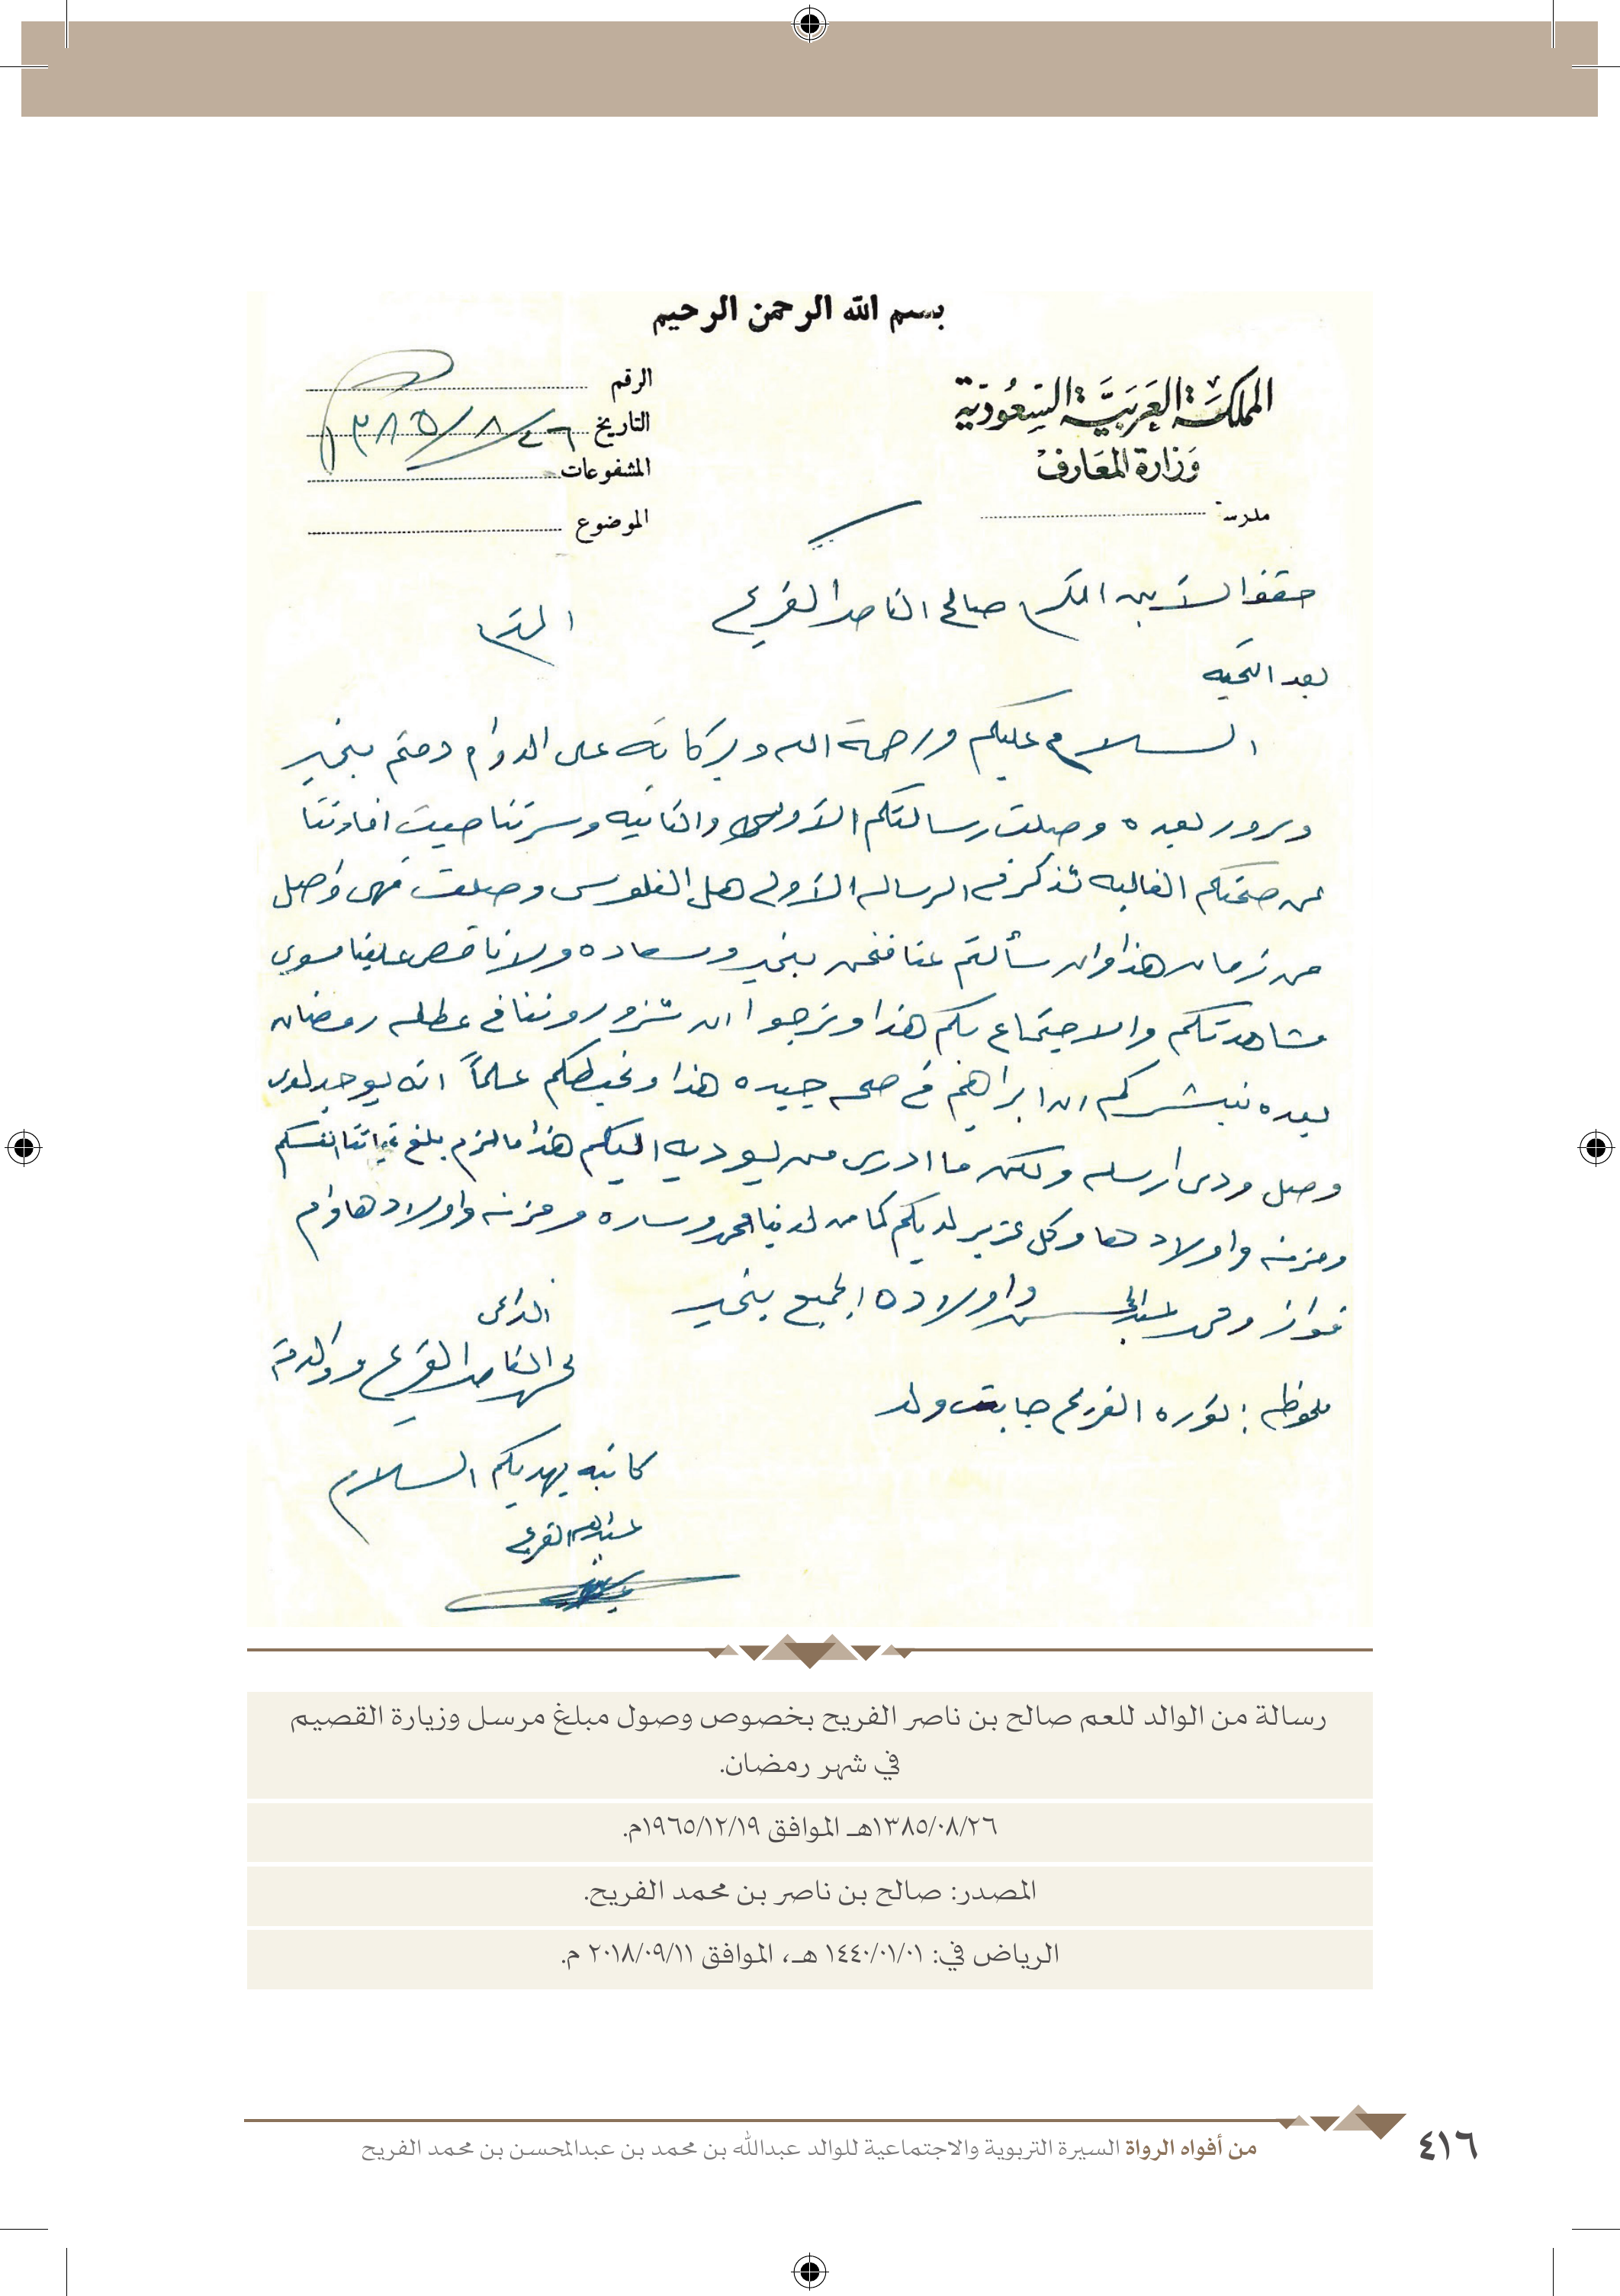 بسم الله الرحمن الرحيم
المملكة العربية السعودية
وزارة المعارف
مدرسة
الرقم
التاريخ ٢٦/٨/١٣٨٥
المشفوعات
الموضوع
حضرة الابن المكرم صالح الناصر الفريح المحترم
بعد التحيه
السلام عليكم ورحمة الله وبركاته على الدوام دمتم بخير
وسرور بعده وصلت رسالتكم الأولى والثانيه وسرتنا حيث افادتنا
عن صحتكم الغاليه تذكر في الرساله الأولى هل الفلوس وصلت فهي واصل
من زمان هذا وان سألتم عنا فنحن بخير وسعاده ولا ناقص علينا سوى
مشاهدتكم والاجتماع بكم هذا ونرجوا ان تزوروننا في عطله رمضان
بعده نبشركم ان ابراهيم في صحه جيده هذا ونحيطكم علماً انه يوجد لدى
وصل ودى ارسله ولكن ما ادرى من يوديه اليكم هذا ما لزم بلغ تحياتنا انفسكم
ومزنه واولادها وكل عزيز لديكم كما من لدينا محمد وساره ومزنه واولادها وام
فواز ومحمد عبدالمحسن واولاده الجميع بخير
الداعي
الناصر الفريح ووالدته
ملحوظه : نوره الفريح جابت ولد
كاتبه يهديكم السلام
عبدالله الفريح
رسالة من الوالد للعم صالح بن ناصر الفريح بخصوص وصول مبلغ مرسل وزيارة القصيم
في شهر رمضان.
١٣٨٥/٠٨/٢٦هـ الموافق ١٩٦٥/١٢/١٩م.
المصدر: صالح بن ناصر بن محمد الفريح.
الرياض في: ١٤٤٠/٠١/٠١ هـ، الموافق ٢٠١٨/٠٩/١١ م.
من أفواه الرواة السيرة التربوية والاجتماعية للوالد عبدالله بن محمد بن عبدالمحسن بن محمد الفريح
٤١٦